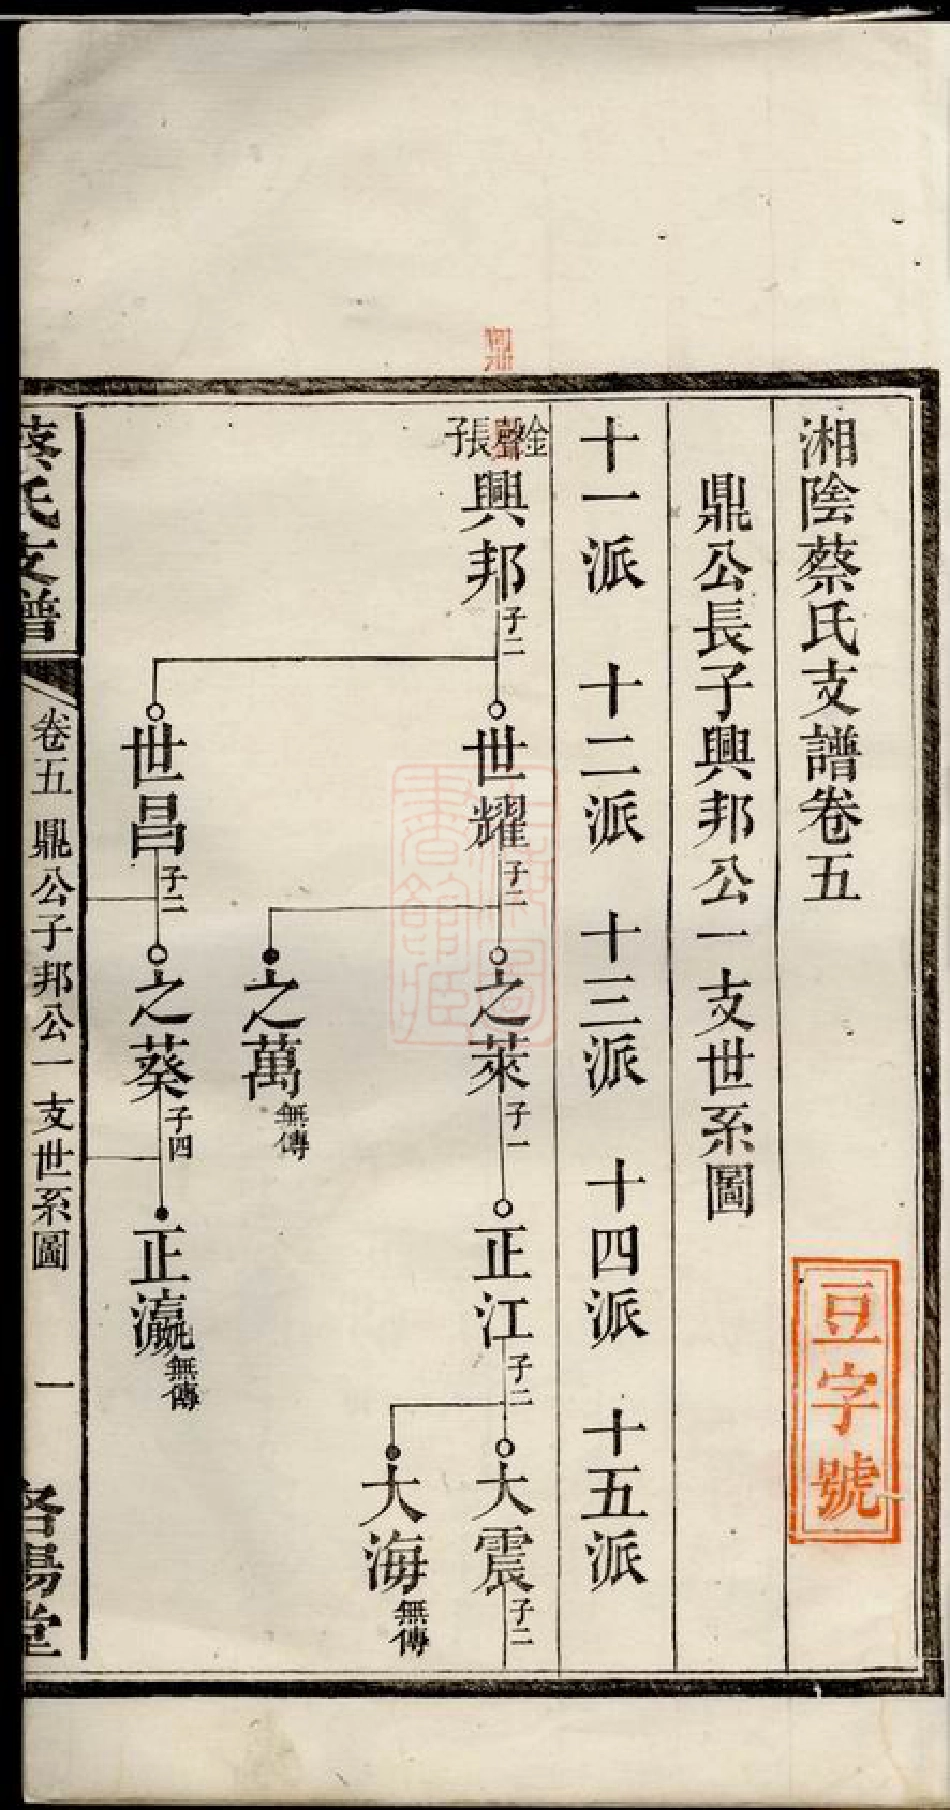 湘陰蔡氏支譜卷五
豆字號
鼎公長子興邦公一支世系圖
十一派 十二派 十三派 十四派 十五派
興邦 子二
世耀 子二
之萊 子一
正江 子二
大震 子二
大海 無傳
之萬 無傳
世昌 子二
之葵 子四
正瀛 無傳
蔡氏支譜
卷五 鼎公子邦公一支世系圖
一
洛陽堂